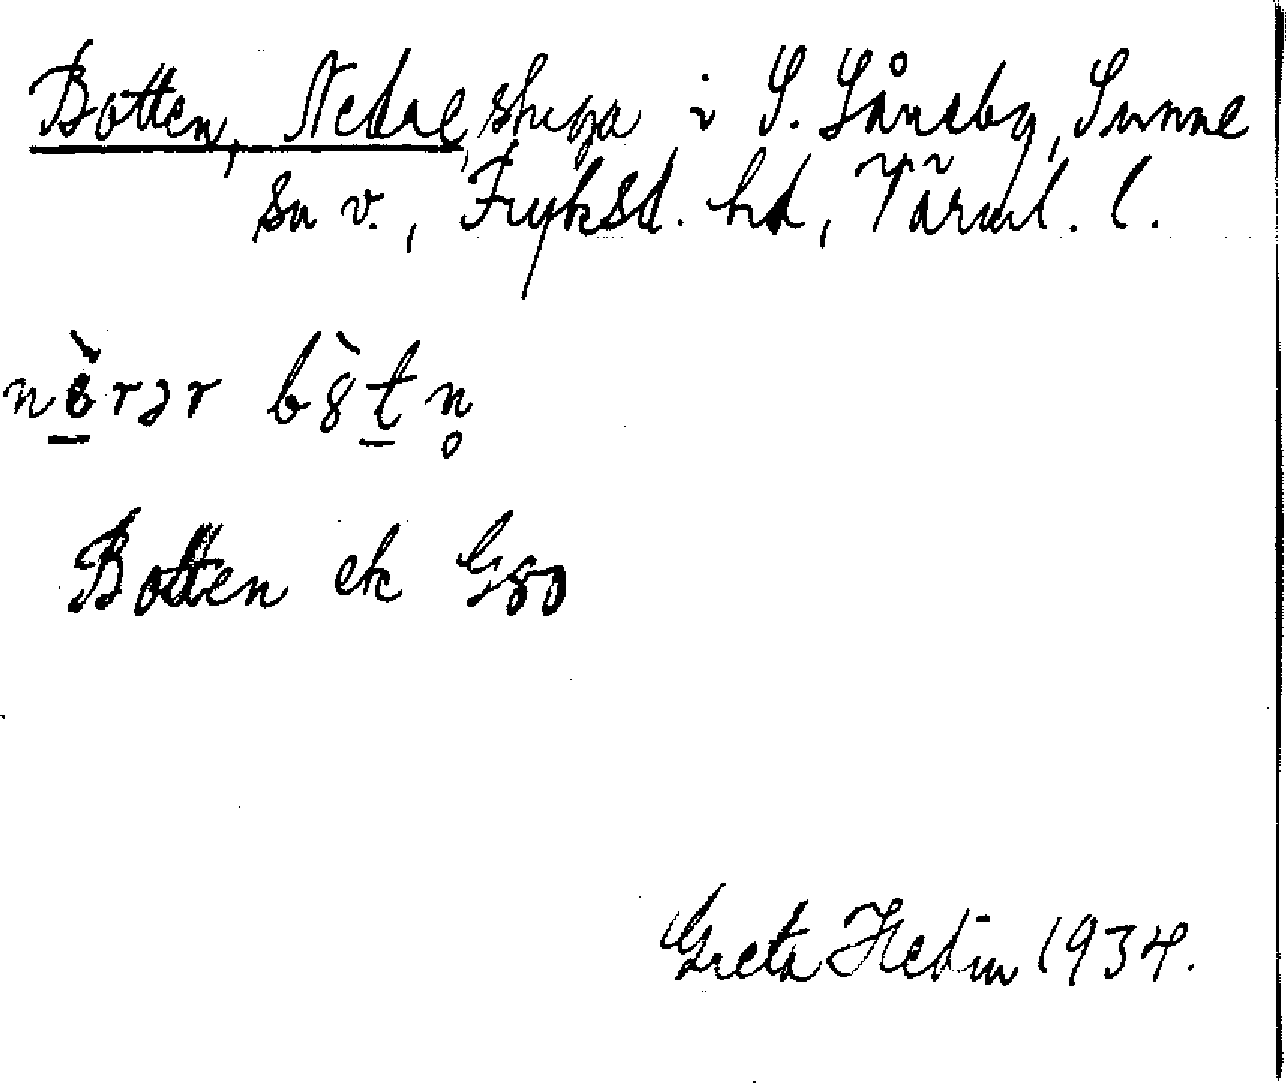 Botten, Nedre, stuga i S. Lånsby, Sunne
sn v., Fryksd. hd, Värml. l.
nè̱rər bò̱ṯn̥
Botten ek G80
Greta Hedin 1934.